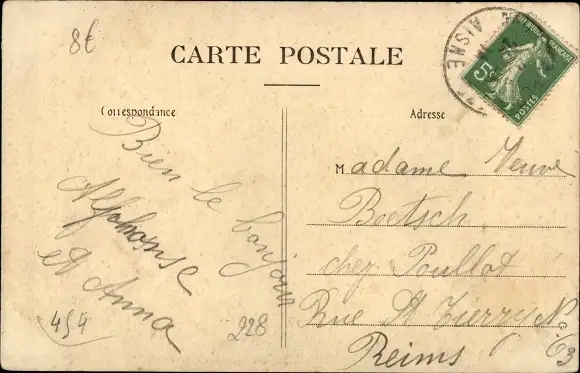 8€
CARTE POSTALE
Correspondance
Adresse
AISNE
RÉPUBLIQUE FRANÇAISE
5c
POSTES
Bien le bonjour
Alphonse
et Anna
454
228
Madame Veuve
Boetsch
chez Poullot
Rue St Tierry No 63
Reims